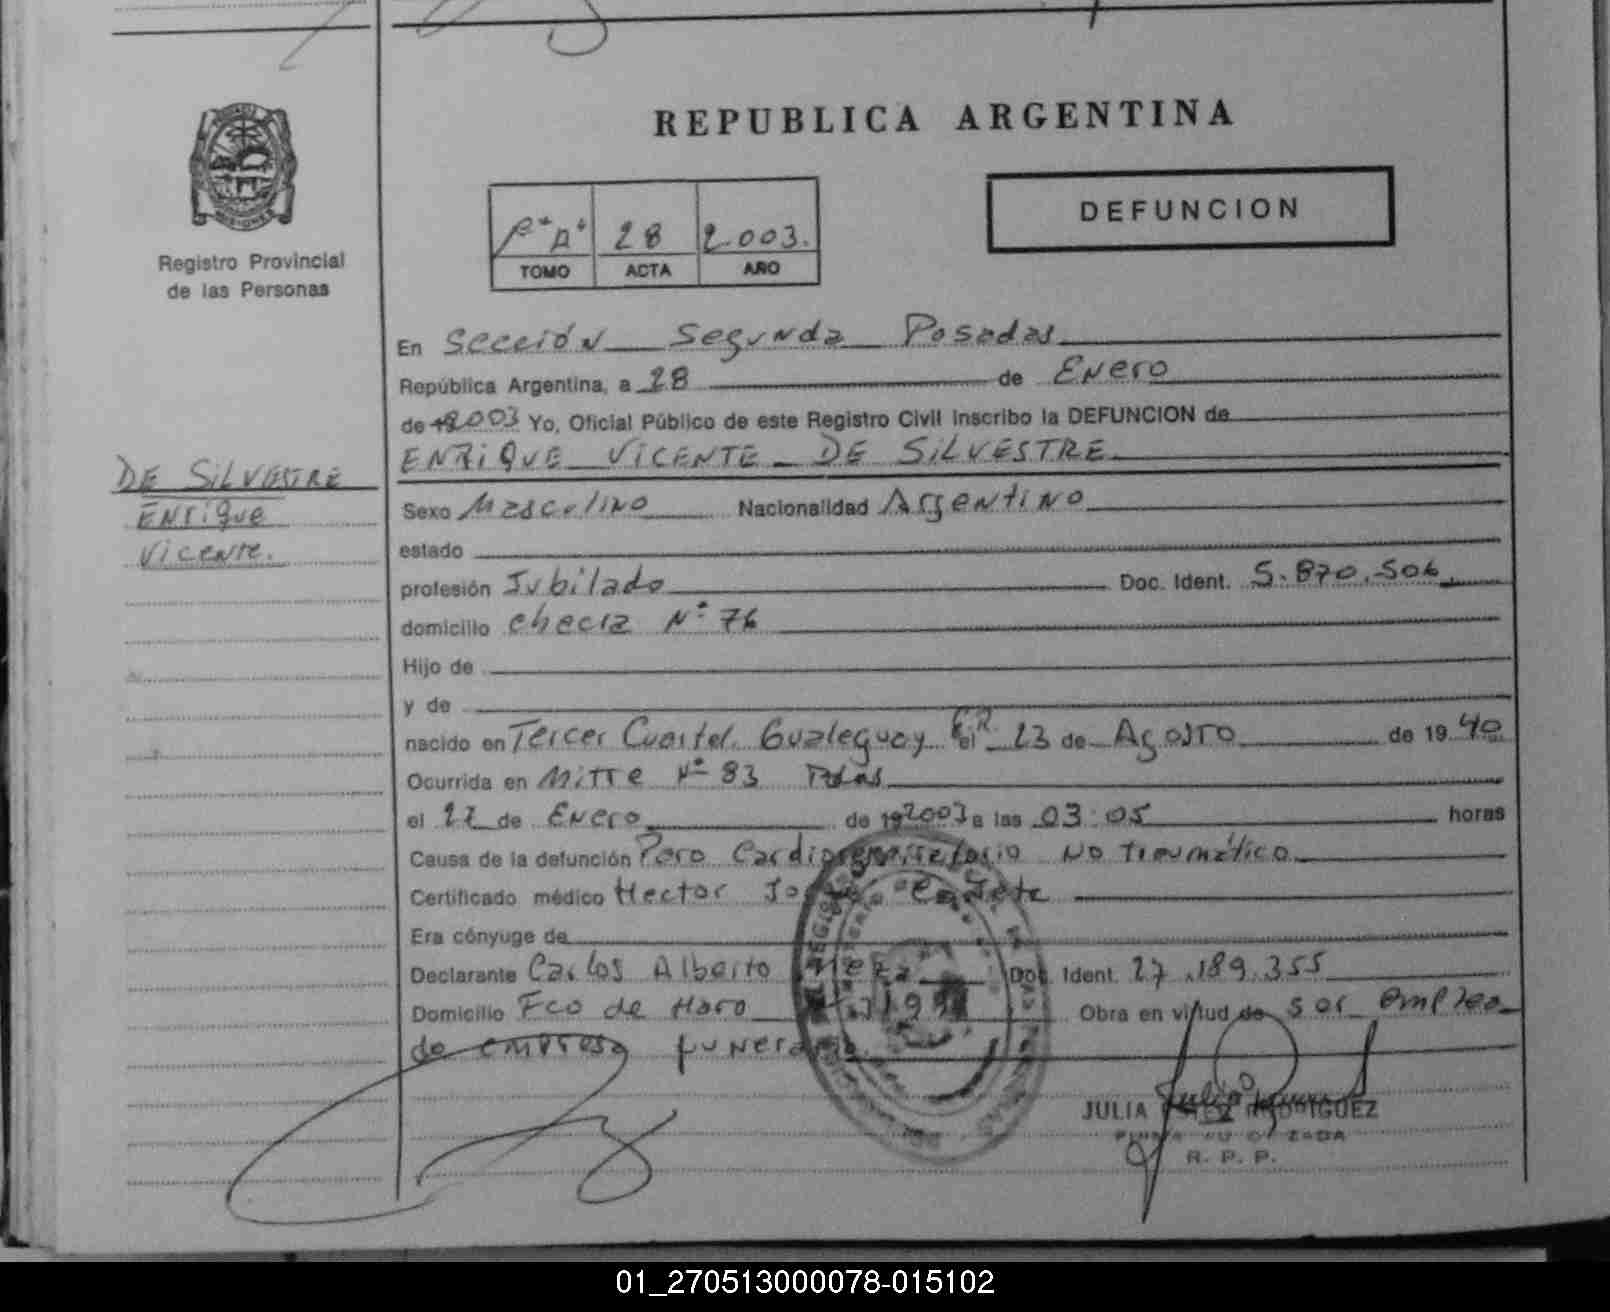 REPUBLICA ARGENTINA
DEFUNCION
28 2.003.
TOMO ACTA AÑO
Registro Provincial
de las Personas
En Sección Segunda Posadas
República Argentina, a 28 de Enero
de 2003 Yo, Oficial Público de este Registro Civil inscribo la DEFUNCION de
ENRiQUE ViCENTE DE SiLVESTRE
DE SiLVESTRE
Enrique
Vicente.
Sexo Masculino Nacionalidad Argentino
estado
profesión Jubilado Doc. Ident. 5.870.506
domicilio checia N° 76
Hijo de
y de
nacido en Tercer Cuartel Gualeguay E.R. el 23 de Agosto de 1940
Ocurrida en Mitre N° 83 Pdas
el 27 de Enero de 192003 a las 03:05 horas
Causa de la defunción Paro Cardiorrespiratorio No Traumático
Certificado médico Hector
Era cónyuge de
Declarante Carlos Alberto Doc. Ident. 27.189.355
Domicilio Fco de Haro Obra en virtud de ser emplea
do empresa funeraria
JULIA RODRIGUEZ
R. P. P.
01_270513000078-015102